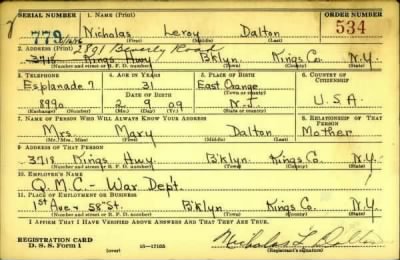 SERIAL NUMBER 1. NAME (Print) ORDER NUMBER
779 Nicholas Leroy Dalton 534
(First) (Middle) (Last)
2. ADDRESS (Print) 2891 Beverly Road
3718 Kings Hwy B'klyn Kings Co. N.Y.
(Number and street or R. F. D. number) (Town) (County) (State)
3. TELEPHONE 4. AGE IN YEARS 5. PLACE OF BIRTH 6. COUNTRY OF CITIZENSHIP
Esplanade 7 31 East Orange
DATE OF BIRTH (Town or county) U.S.A.
8990 2 9 09 N.J.
(Exchange) (Number) (Mo.) (Day) (Yr.) (State or country)
7. NAME OF PERSON WHO WILL ALWAYS KNOW YOUR ADDRESS 8. RELATIONSHIP OF THAT PERSON
Mrs. Mary Dalton Mother
(Mr., Mrs., Miss) (First) (Middle) (Last)
9. ADDRESS OF THAT PERSON
3718 Kings Hwy B'klyn Kings Co. N.Y.
(Number and street or R. F. D. number) (Town) (County) (State)
10. EMPLOYER'S NAME
Q.M.C. - War Dep't.
11. PLACE OF EMPLOYMENT OR BUSINESS
1st Ave & 58 St. B'klyn Kings Co. N.Y.
(Number and street or R. F. D. number) (Town) (County) (State)
I AFFIRM THAT I HAVE VERIFIED ABOVE ANSWERS AND THAT THEY ARE TRUE.
REGISTRATION CARD
D. S. S. FORM 1 (over) 16—17105 Nicholas L Dalton